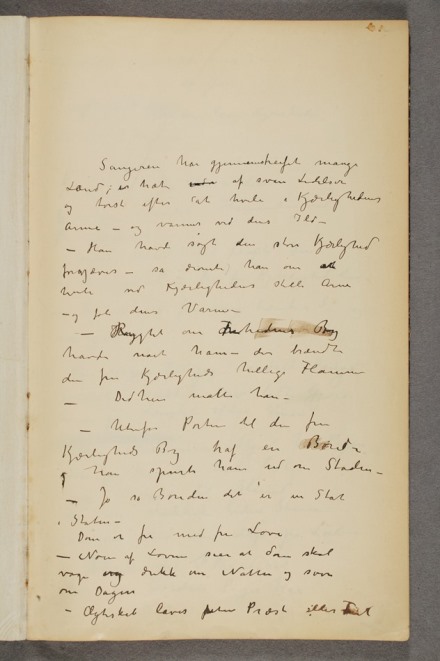 Sangeren har gjennemstreifet mange
Land, er træt af svare Lidelser
og tørst efter at hvile i Kjærlighedens
Arme – og varmes ved dens Ild –
– Han havde søgt den store Kjærlighed
forgjæves – så drømte han om at
hvile ved Kjærlighedens Arme
– og føle dens Varme
– Rygtet om Frihedens By
havde naaet ham – der brændte
den fri Kjærligheds hellige Flamme
– Did hen maatte han –
– Udenfor Porten til den frie
Kjærligheds By traf en Bonde
og han spurte ham ud om Staden –
– Jo sa Bonden det er en Stat
i Staten –
Den er fri med frie Love
– Noen af Lovene sier at den skal
våge og drikke om Natten og sove
om Dagen
– Ægteskab laves uten Præst eller